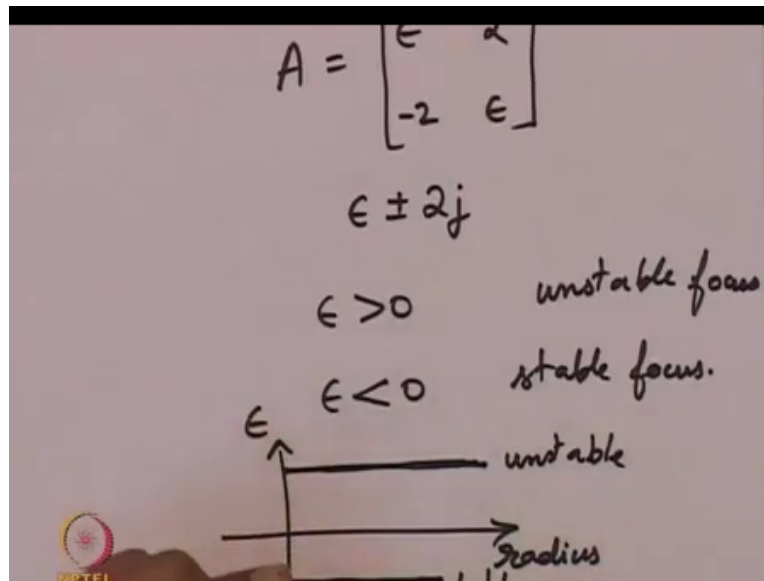 A = [ϵ 2
-2 ϵ]
ϵ ± 2j
ϵ > 0 unstable focus
ϵ < 0 stable focus.
ϵ
unstable
radius
NPTEL